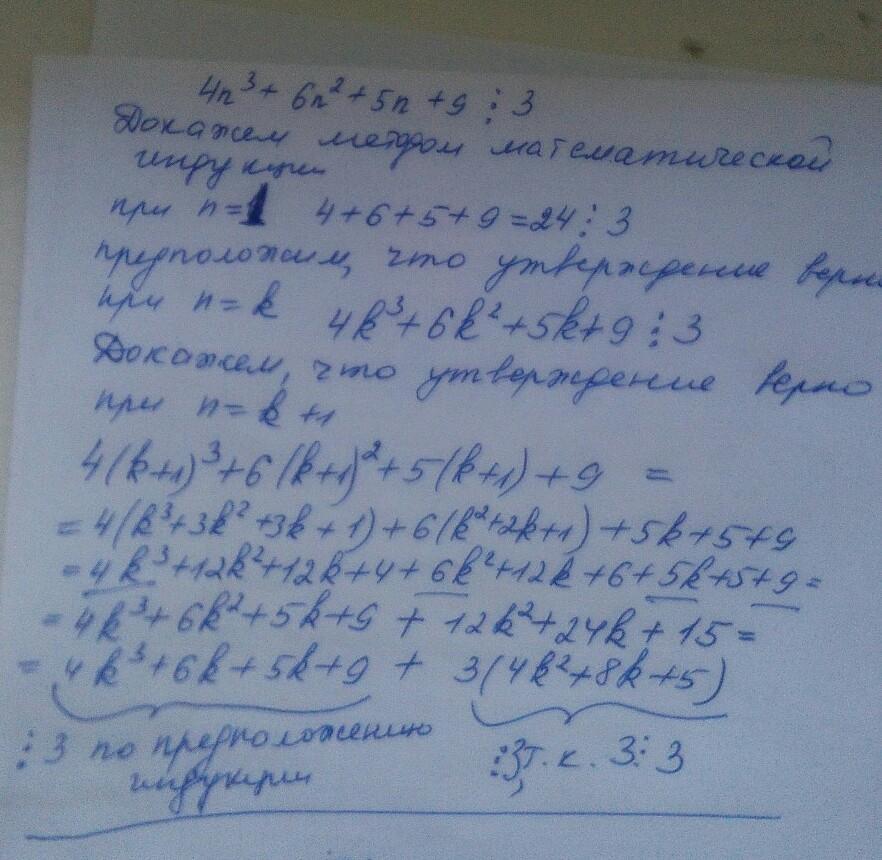 4n³ + 6n² + 5n + 9 ⋮ 3
Докажем методом математической
индукции
при n=1 4+6+5+9=24 ⋮ 3
предположим, что утверждение верно
при n=k 4k³+6k²+5k+9 ⋮ 3
Докажем, что утверждение верно
при n=k+1
4(k+1)³+6(k+1)²+5(k+1)+9 =
=4(k³+3k²+3k+1)+6(k²+2k+1)+5k+5+9
=4k³+12k²+12k+4+6k²+12k+6+5k+5+9=
=4k³+6k²+5k+9 + 12k²+24k+15=
= 4k³+6k+5k+9 + 3(4k²+8k+5)
⋮3 по предположению ⋮3, т.к. 3⋮3
индукции